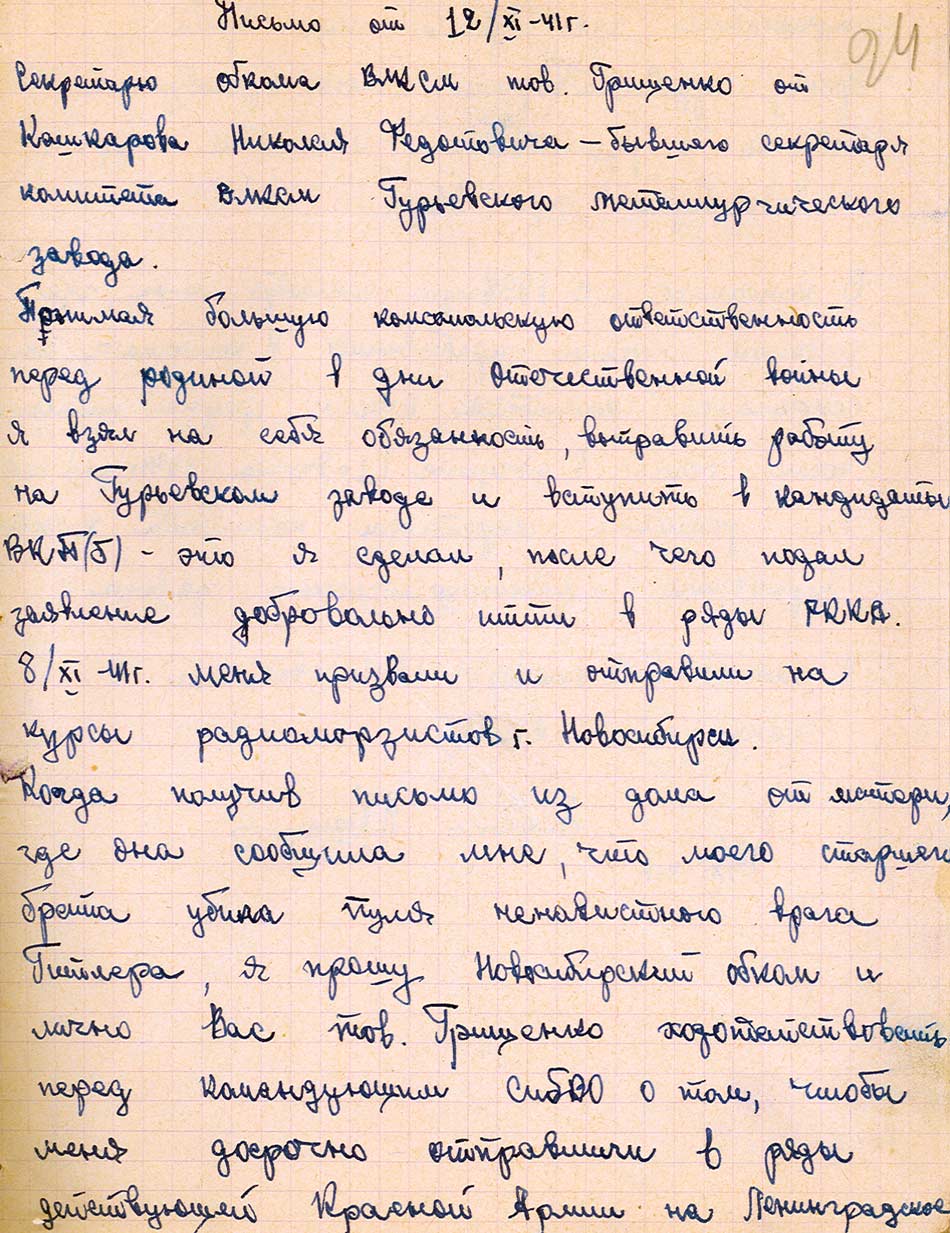 Письмо от 12/XI-41г.
94
Секретарю обкома ВЛКСМ тов. Грищенко от
Кашкарова Николая Федотовича – бывшего секретаря
комитета ВЛКСМ Гурьевского металлургического
завода.
Принимая большую комсомольскую ответственность
перед родиной в дни отечественной войны
я взял на себя обязанность, выправить работу
на Гурьевском заводе и вступить в кандидаты
ВКП(б) – это я сделал, после чего подал
заявление добровольно итти в ряды РККА.
8/XI-41г. меня призвали и отправили на
курсы радиоморзистов г. Новосибирск.
Когда получив письмо из дома от матери,
где она сообщила мне, что моего старшего
брата убила пуля ненавистного врага
Гитлера, я прошу Новосибирский обком и
лично Вас тов. Грищенко ходотайствовать
перед командующим СибВО о том, чтобы
меня досрочно отправили в ряды
действующей Красной Армии на Ленинградское